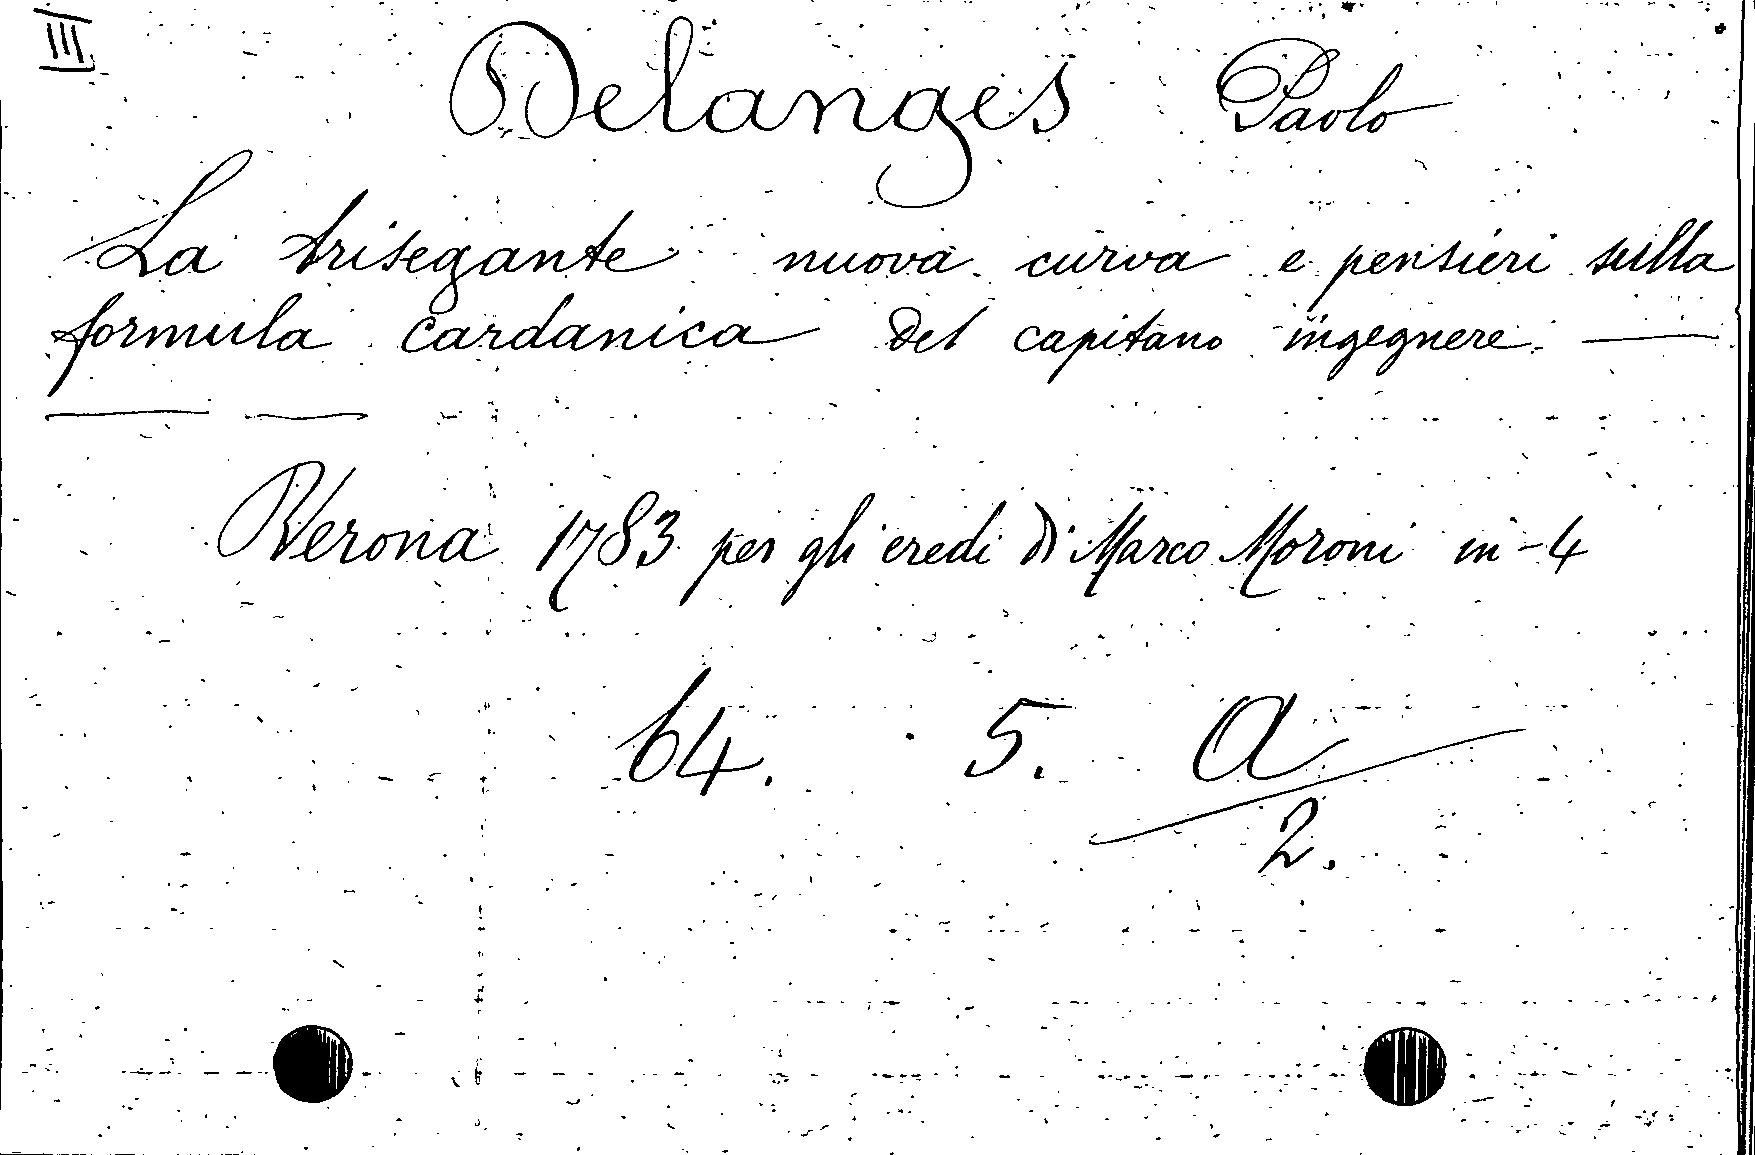 III
Delanges Paolo
La trisegante nuova curva e pensieri sulla
formula cardanica del capitano ingegnere ——
—— ——
Verona 1783 per gli eredi di Marco Moroni in-4
64. 5. a
2.